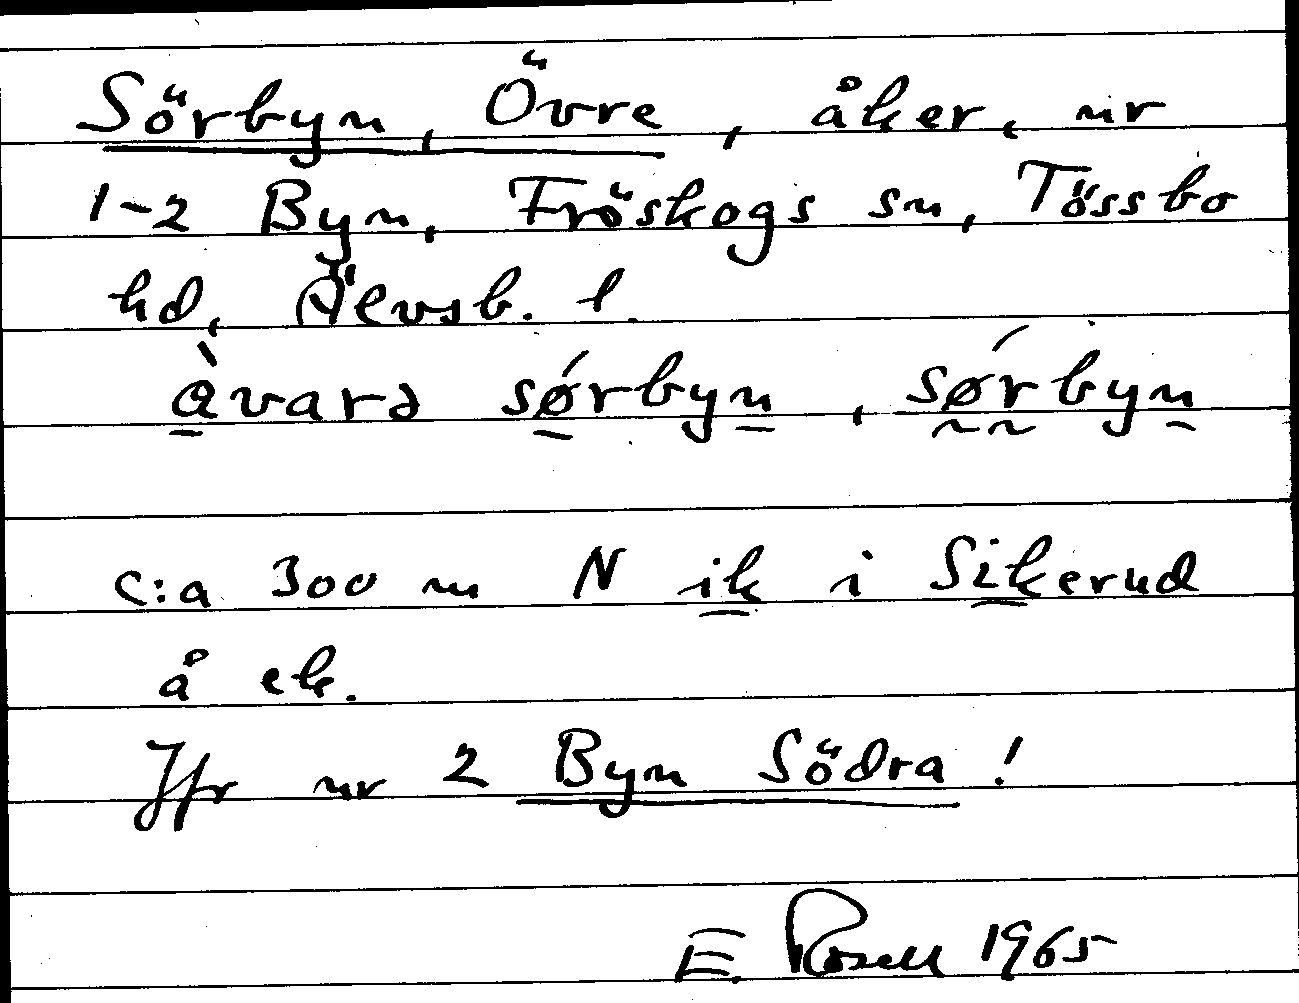 Sörbyn, Övre, åker, nr
1-2 Byn, Fröskogs sn, Tössbo
hd, Älvsb. l.
àvarə sǿrbyn, sǿrbyn
c:a 300 m N ik i Sikerud
å ek.
Jfr nr 2 Byn Södra!
E. Rosell 1965